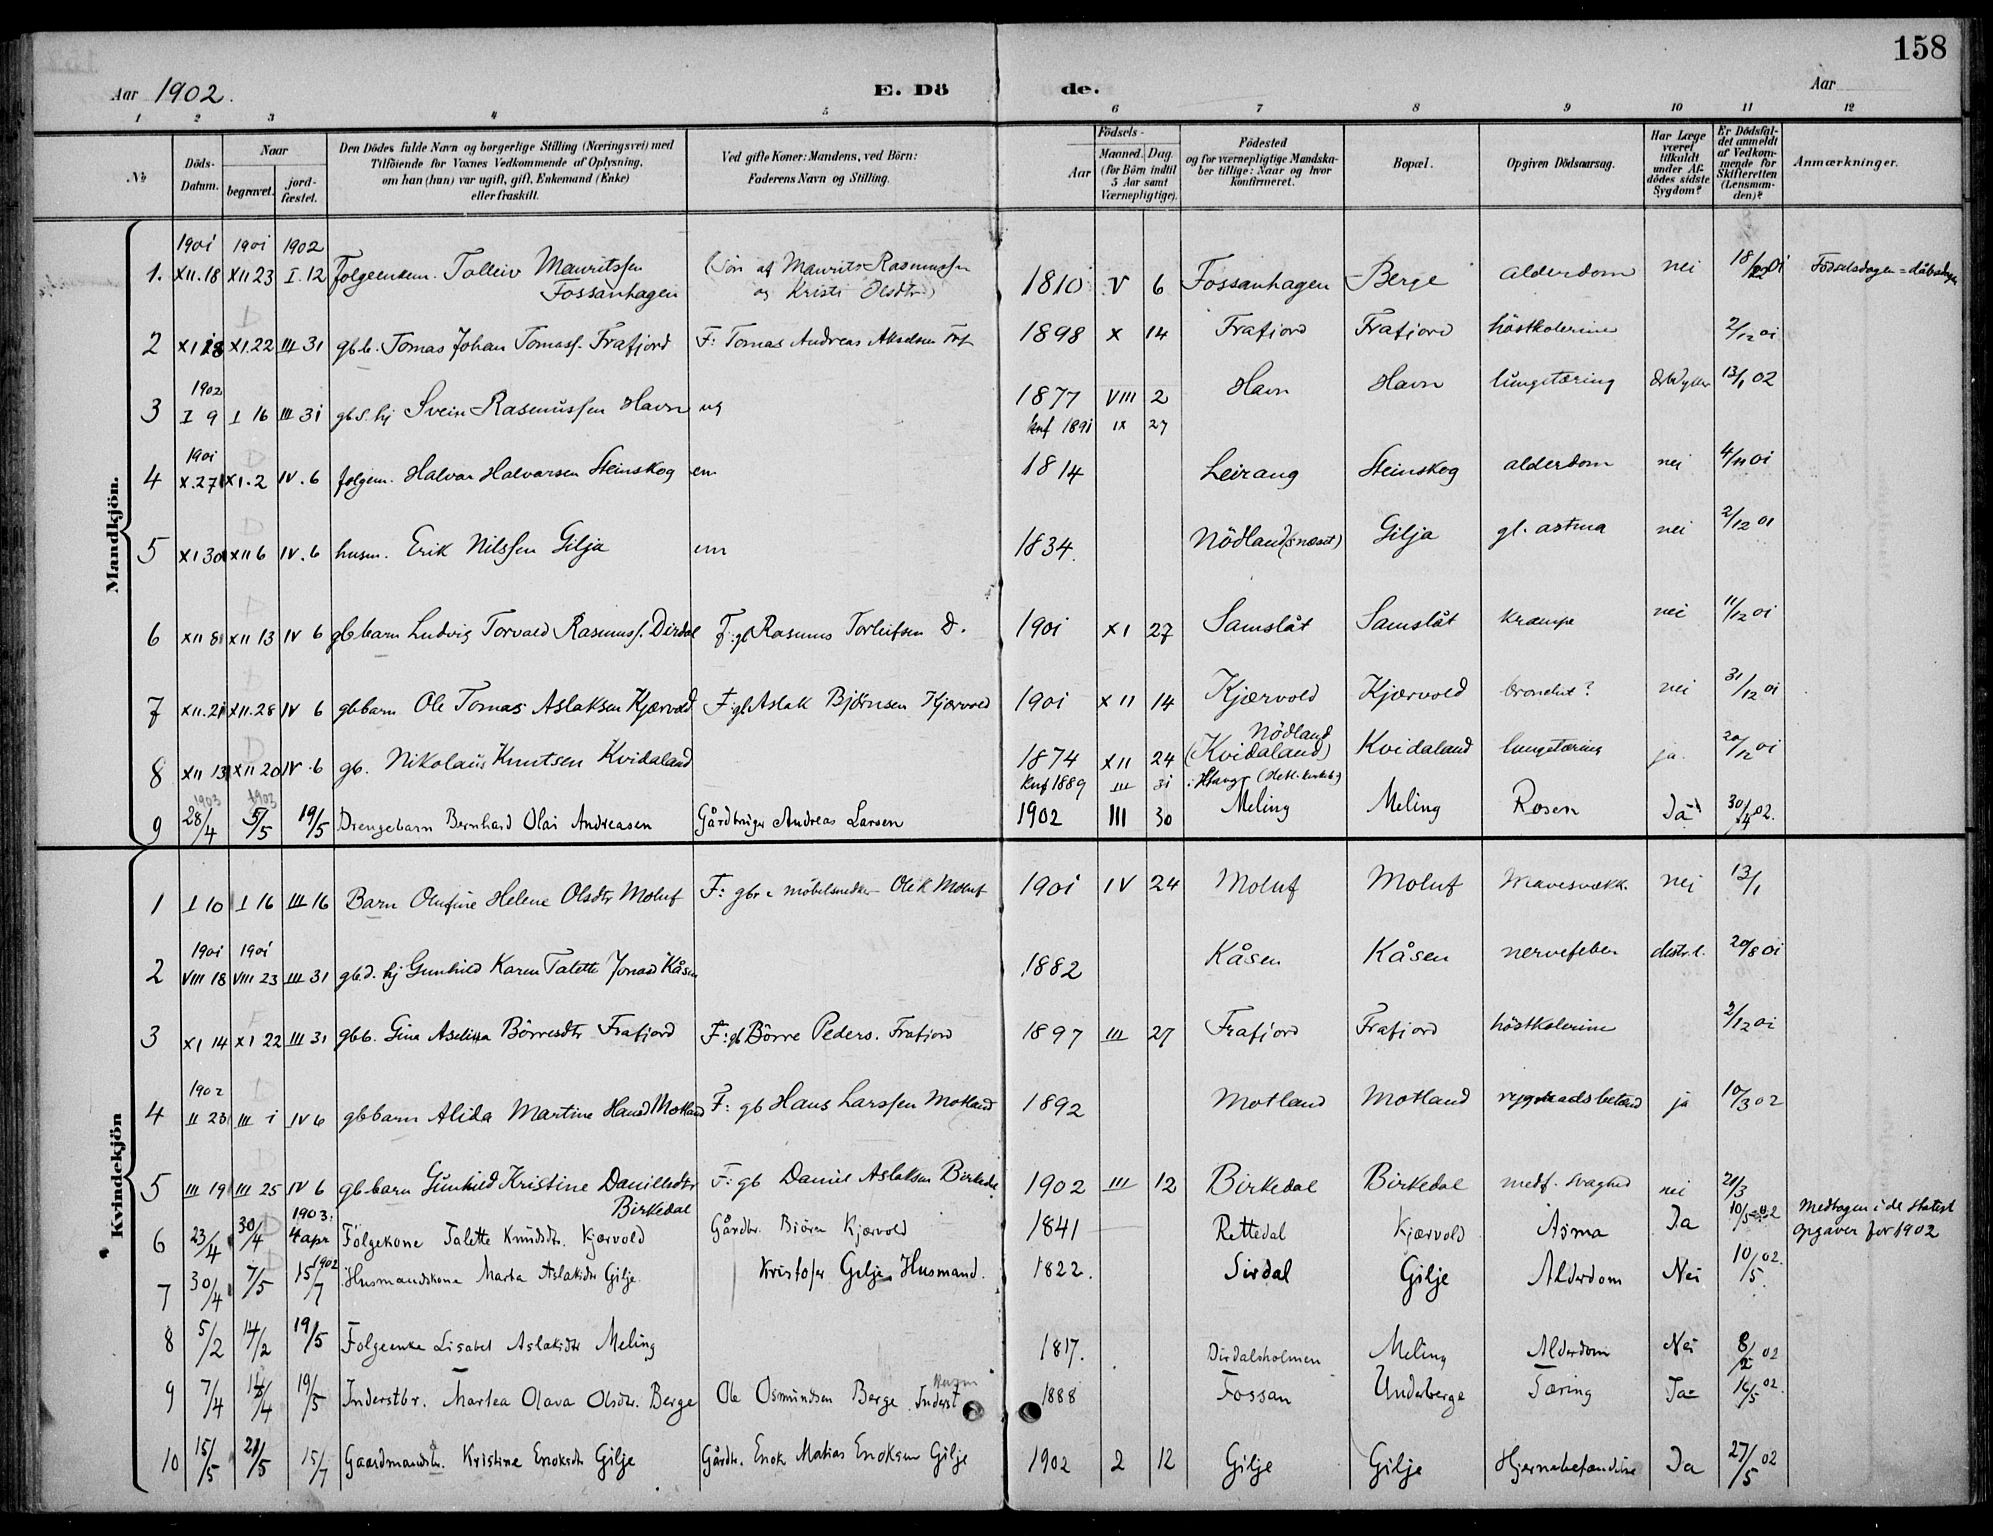 158
Aar 1902. E. Dö de. Aar
1 2 3 4 5 6 7 8 9 10 11 12
№ Döds-Datum. Naar begravet. jord-fæstet. Den Dödes fulde Navn og borgerlige Stilling (Næringsvei) med Tilföiende for Voxnes Vedkommende af Oplysning, om han (hun) var ugift, gift, Enkemand (Enke) eller fraskilt. Ved gifte Koner: Mandens, ved Börn: Faderens Navn og Stilling. Födsels- Aar Maaned. Dag. (for Börn indtil 5 Aar samt Værnepligtige). Födested og for værnepligtige Mandska-ber tillige: Naar og hvor Konfirmeret. Bopæl. Opgiven Dödsaarsag. Har Læge været tilkaldt under Af-dödes sidste Sygdom? Er Dödsfal-det anmeldt af Vedkom-mende for Skifteretten (Lensman-den)? Anmærkninger.
Mandkjön.
1901 1901 1902
1. XII.18 XII 23 I.12 Folgeenkem. Tolleiv Mauritssen Fossanhagen (Sön af Maurits Rasmussen og Kristi Olsdtr) 1810 V 6 Fossanhagen Berge alderdom nei 18/12 01 Fødselsdagen = dåbsdagen
2 XI 18 XI.22 III 31 gbb. Tomas Johan Tomass. Frafjord F: Tomas Andreas Akselsen Frf 1898 X 14 Frafjord Frafjord höstkolerine 2/12 01
1902
3 I 9 I 16 III 31 gbS. hj Svein Rasmussen Havn ug 1877 VIII 2 Havn Havn lungetæring 13/1 02
knf 1891 IX 27
1901
4 X.27 XI.2 IV.6 folgem. Halvar Halvarsen Steinskog em 1814 Leirang Steinskog alderdom nei 4/11 01
5 XI 30 XII 6 IV.6 husm. Erik Nilssen Gilja em 1834. Nödland Gilja gl. astma nei 2/12 01
6 XII 8 XII 13 IV 6 gbbarn Ludvig Torvald Rasmuss. Dirdal F: gb Rasmus Torleifsen D. 1901 XI 27 Samslåt Samslåt krampe nei 11/12 01
7 XII.21 XII.28 IV 6 gbbarn Ole Tomas Aslaksen Kjærvold F: gb Aslak Björnsen Kjærvold 1901 XII 14 Kjærvold Kjærvold bronchit? nei 31/12 01
8 XII 13 XII 20 IV.6 gb. Nikolaus Knutsen Kvidaland 1874 XII 24 Nödland (Kvidaland) Kvidaland lungetæring ja. 20/12 01
knf 1889 III 31
1903 1903
9 28/4 5/5 19/5 Drengebarn Bernhard Olai Andreasen Gårdbruger Andreas Larsen 1902 III 30 Meling Meling Rosen Ja 30/4 02.
Kvindekjön
1 I 10 I 16 III 16 Barn Olufine Helene Olsdtr Moluf F: gbr & möbelsnedker Ole K Moluf 1901 IV 24 Moluf Moluf Mavesvækk. nei 13/1
1901 1901
2 VIII 18 VIII 23 III 31 gbd. hj Gunhild Karen Talette Jonasd Kåsen 1882 Kåsen Kåsen nervefeber distr.l. 20/8 01
3 XI 14 XI 22 III 31 gbb. Gina Aselina Börresdtr Frafjord F: gb Börre Peders. Frafjord 1897 III 27 Frafjord Frafjord höstkolerine 2/12 01
1902
4 II 23 III 1 IV 6 gbbarn Alida Martine Hansd Motland F: gb Hans Larssen Motland 1892 Motland Motland rygmadsbetænd ja 10/3 02
5 III 19 III 25 IV 6 gb-barn Gunhild Kristine Danielsdtr Birkedal F: gb Daniel Aslaksen Birkedal 1902 III 12 Birkedal Birkedal medf. svaghed nei 21/3
6 23/4 30/4 1903: 4 apr Fölgekone Talette Knudsdtr. Kjærvold Gårdbr. Björn Kjærvold 1841 Rettedal Kjærvold Asma Ja 10/5 02 Medtagen i de statist opgaver for 1902
7 30/4 7/5 15/7 1902 Husmandskone Marta Aslaksdtr Gilje Kristofer Gilje Husmand. 1822. Sirdal Gilje Alderdom Nei 10/5 02.
8 5/2 14/2 19/5 Folgeenke Lisabet Aslaksdtr Meling 1817. Dirdalsholmen Meling Alderdom Nei 8/2 02
9 7/4 14/4 19/5 Inderstbr. Martea Olava Olsdtr. Berge Ole Osmundsen Berge Inderst 1888 Fossan Underberge Tæring Ja 16/5 02.
10 15/5 21/5 15/7 Gaardmandsbr. Kristine Enoksdtr Gilje Gårdbr. Enok Matias Enoksen Gilje 1902 2 12 Gilje Gilje Hjernebetændelse Ja 27/5 02